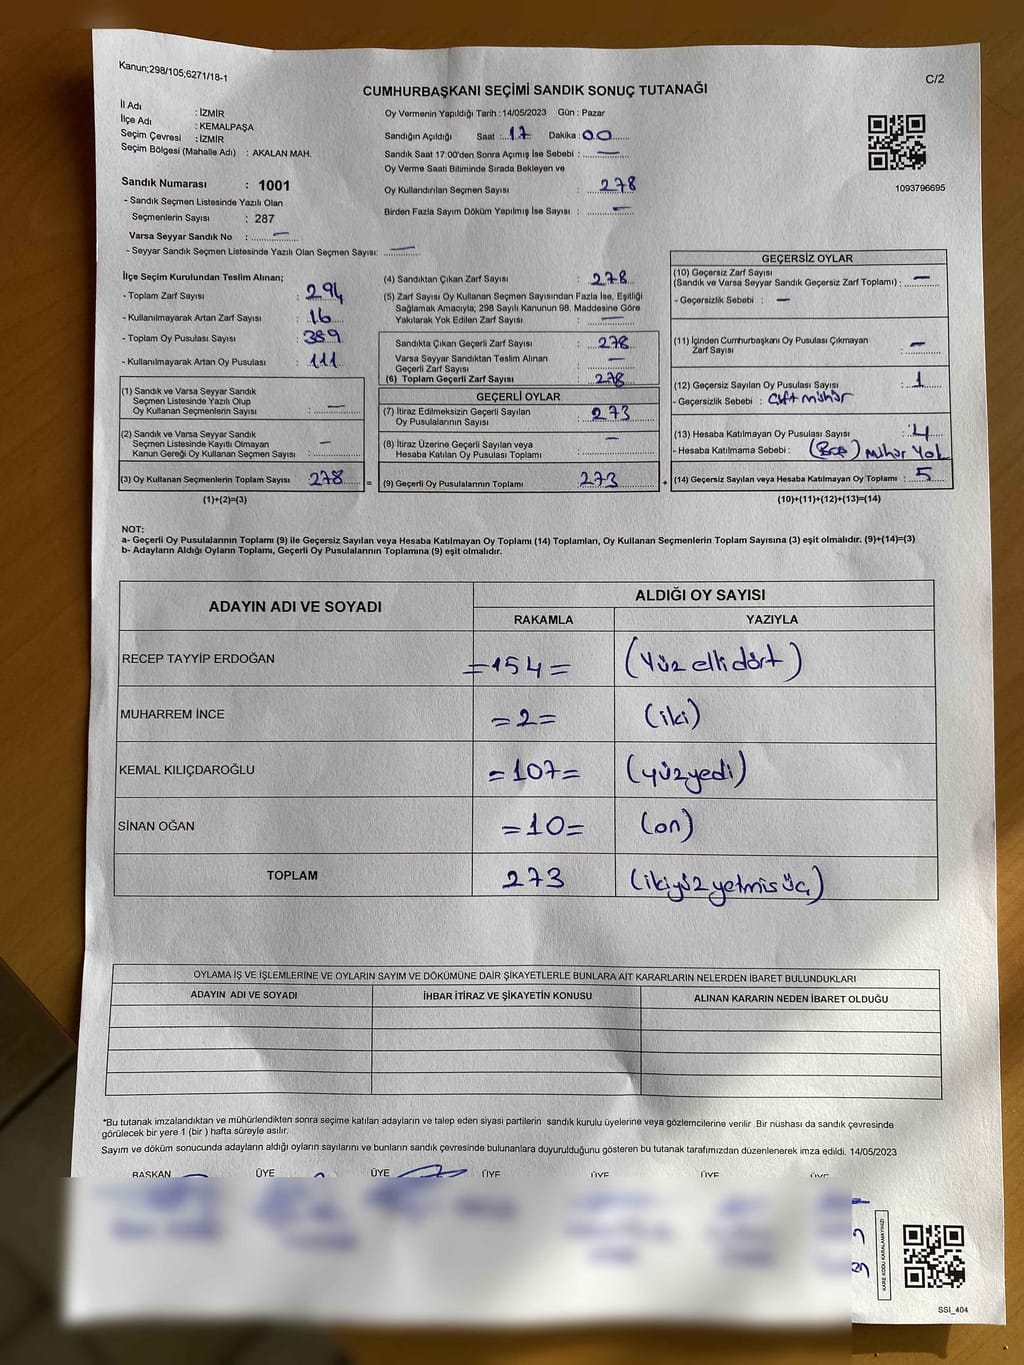 Kanun;298/105;6271/18-1
C/2
CUMHURBAŞKANI SEÇİMİ SANDIK SONUÇ TUTANAĞI
İl Adı : İZMİR
İlçe Adı : KEMALPAŞA
Seçim Çevresi : İZMİR
Seçim Bölgesi (Mahalle Adı) : AKALAN MAH.
Sandık Numarası : 1001
- Sandık Seçmen Listesinde Yazılı Olan
Seçmenlerin Sayısı : 287
Varsa Seyyar Sandık No : —
- Seyyar Sandık Seçmen Listesinde Yazılı Olan Seçmen Sayısı: —
Oy Vermenin Yapıldığı Tarih : 14/05/2023 Gün : Pazar
Sandığın Açıldığı Saat : 17 Dakika : 00
Sandık Saat 17:00'den Sonra Açımış İse Sebebi : —
Oy Verme Saati Bitiminde Sırada Bekleyen ve
Oy Kullandırılan Seçmen Sayısı : 278
Birden Fazla Sayım Döküm Yapılmış İse Sayısı : —
1093796695
İlçe Seçim Kurulundan Teslim Alınan;
- Toplam Zarf Sayısı : 294
- Kullanılmayarak Artan Zarf Sayısı : 16
- Toplam Oy Pusulası Sayısı : 389
- Kullanılmayarak Artan Oy Pusulası : 111
(1) Sandık ve Varsa Seyyar Sandık
Seçmen Listesinde Yazılı Olup
Oy Kullanan Seçmenlerin Sayısı : —
(2) Sandık ve Varsa Seyyar Sandık
Seçmen Listesinde Kayıtlı Olmayan
Kanun Gereği Oy Kullanan Seçmen Sayısı : —
(3) Oy Kullanan Seçmenlerin Toplam Sayısı 278 =
(1)+(2)=(3)
(4) Sandıktan Çıkan Zarf Sayısı : 278
(5) Zarf Sayısı Oy Kullanan Seçmen Sayısından Fazla İse, Eşitliği
Sağlamak Amacıyla; 298 Sayılı Kanunun 98. Maddesine Göre
Yakılarak Yok Edilen Zarf Sayısı : —
Sandıkta Çıkan Geçerli Zarf Sayısı : 278
Varsa Seyyar Sandıktan Teslim Alınan
Geçerli Zarf Sayısı : —
(6) Toplam Geçerli Zarf Sayısı : 278
GEÇERLİ OYLAR
(7) İtiraz Edilmeksizin Geçerli Sayılan
Oy Pusulalarının Sayısı : 273
(8) İtiraz Üzerine Geçerli Sayılan veya
Hesaba Katılan Oy Pusulası Toplamı : —
(9) Geçerli Oy Pusulalarının Toplamı : 273 +
GEÇERSİZ OYLAR
(10) Geçersiz Zarf Sayısı
(Sandık ve Varsa Seyyar Sandık Geçersiz Zarf Toplamı) : —
- Geçersizlik Sebebi : —
(11) İçinden Cumhurbaşkanı Oy Pusulası Çıkmayan
Zarf Sayısı : —
(12) Geçersiz Sayılan Oy Pusulası Sayısı : 1
- Geçersizlik Sebebi : Çift mühür
(13) Hesaba Katılmayan Oy Pusulası Sayısı : 4
- Hesaba Katılmama Sebebi : (Boş) mühür Yok
(14) Geçersiz Sayılan veya Hesaba Katılmayan Oy Toplamı : 5
(10)+(11)+(12)+(13)=(14)
NOT:
a- Geçerli Oy Pusulalarının Toplamı (9) ile Geçersiz Sayılan veya Hesaba Katılmayan Oy Toplamı (14) Toplamları, Oy Kullanan Seçmenlerin Toplam Sayısına (3) eşit olmalıdır. (9)+(14)=(3)
b- Adayların Aldığı Oyların Toplamı, Geçerli Oy Pusulalarının Toplamına (9) eşit olmalıdır.
ADAYIN ADI VE SOYADI ALDIĞI OY SAYISI
RAKAMLA YAZIYLA
RECEP TAYYİP ERDOĞAN =154= (Yüz elli dört)
MUHARREM İNCE =2= (iki)
KEMAL KILIÇDAROĞLU =107= (yüzyedi)
SİNAN OĞAN =10= (on)
TOPLAM 273 (ikiyüz yetmiş üç)
OYLAMA İŞ VE İŞLEMLERİNE VE OYLARIN SAYIM VE DÖKÜMÜNE DAİR ŞİKAYETLERLE BUNLARA AİT KARARLARIN NELERDEN İBARET BULUNDUKLARI
ADAYIN ADI VE SOYADI İHBAR İTİRAZ VE ŞİKAYETİN KONUSU ALINAN KARARIN NEDEN İBARET OLDUĞU
*Bu tutanak imzalandıktan ve mühürlendikten sonra seçime katılan adayların ve talep eden siyasi partilerin sandık kurulu üyelerine veya gözlemcilerine verilir .Bir nüshası da sandık çevresinde
görülecek bir yere 1 (bir ) hafta süreyle asılır.
Sayım ve döküm sonucunda adayların aldığı oyların sayılarını ve bunların sandık çevresinde bulunanlara duyurulduğunu gösteren bu tutanak tarafımızdan düzenlenerek imza edildi. 14/05/2023
BAŞKAN ÜYE ÜYE ÜYE ÜYE ÜYE ÜYE
KARE KODU KARALAMAYINIZ!
SSİ_404